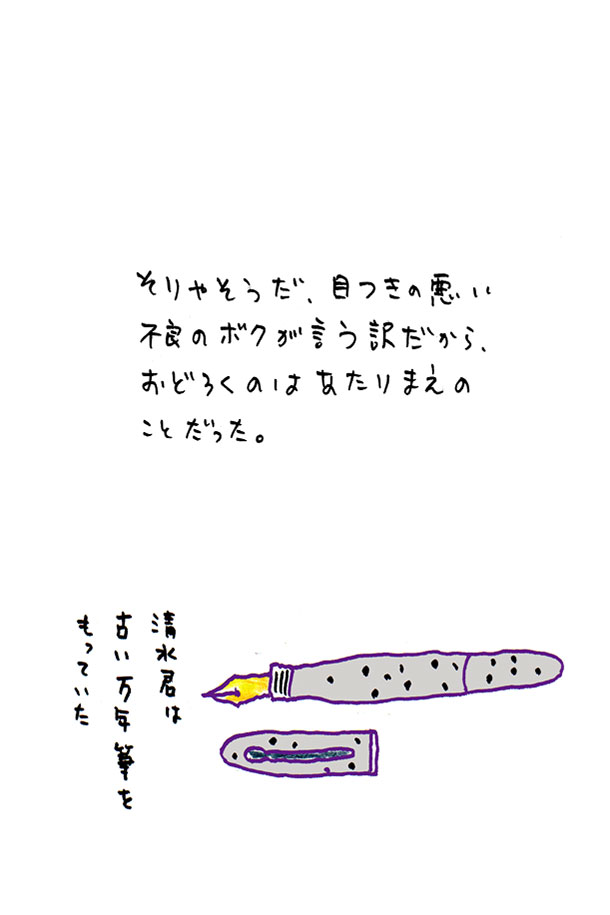 そりゃそうだ、目つきの悪い
不良のボクが言う訳だから、
おどろくのはあたりまえの
ことだった。
清水君は
古い万年筆を
もっていた